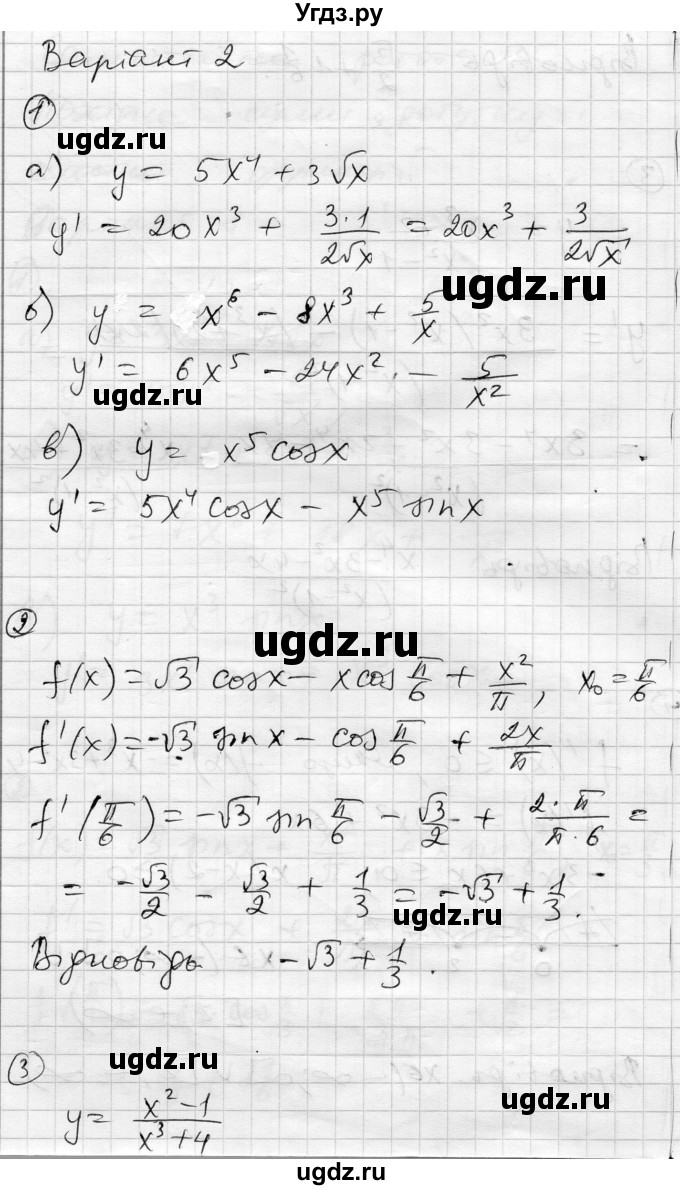 Угдз.ру
Варіант 2
①
ugdz.ru
а) y = 5x⁴ + 3√x
y' = 20x³ + (3·1)/(2√x) = 20x³ + 3/(2√x)
ugdz.ru
б) y = x⁶ - 8x³ + 5/x
y' = 6x⁵ - 24x² - 5/x²
ugdz.ru
в) y = x⁵ cos x
y' = 5x⁴ cos x - x⁵ sin x
②
ugdz.ru
f(x) = √3 cos x - x cos π/6 + x²/π, x₀ = π/6
f'(x) = -√3 sin x - cos π/6 + 2x/π
f'(π/6) = -√3 sin π/6 - √3/2 + (2·π)/(π·6) =
= -√3/2 - √3/2 + 1/3 = -√3 + 1/3.
ugdz.ru
Відповідь -√3 + 1/3.
③
ugdz.ru
y = (x² - 1)/(x³ + 4)
ugdz.ru
ugdz.ru